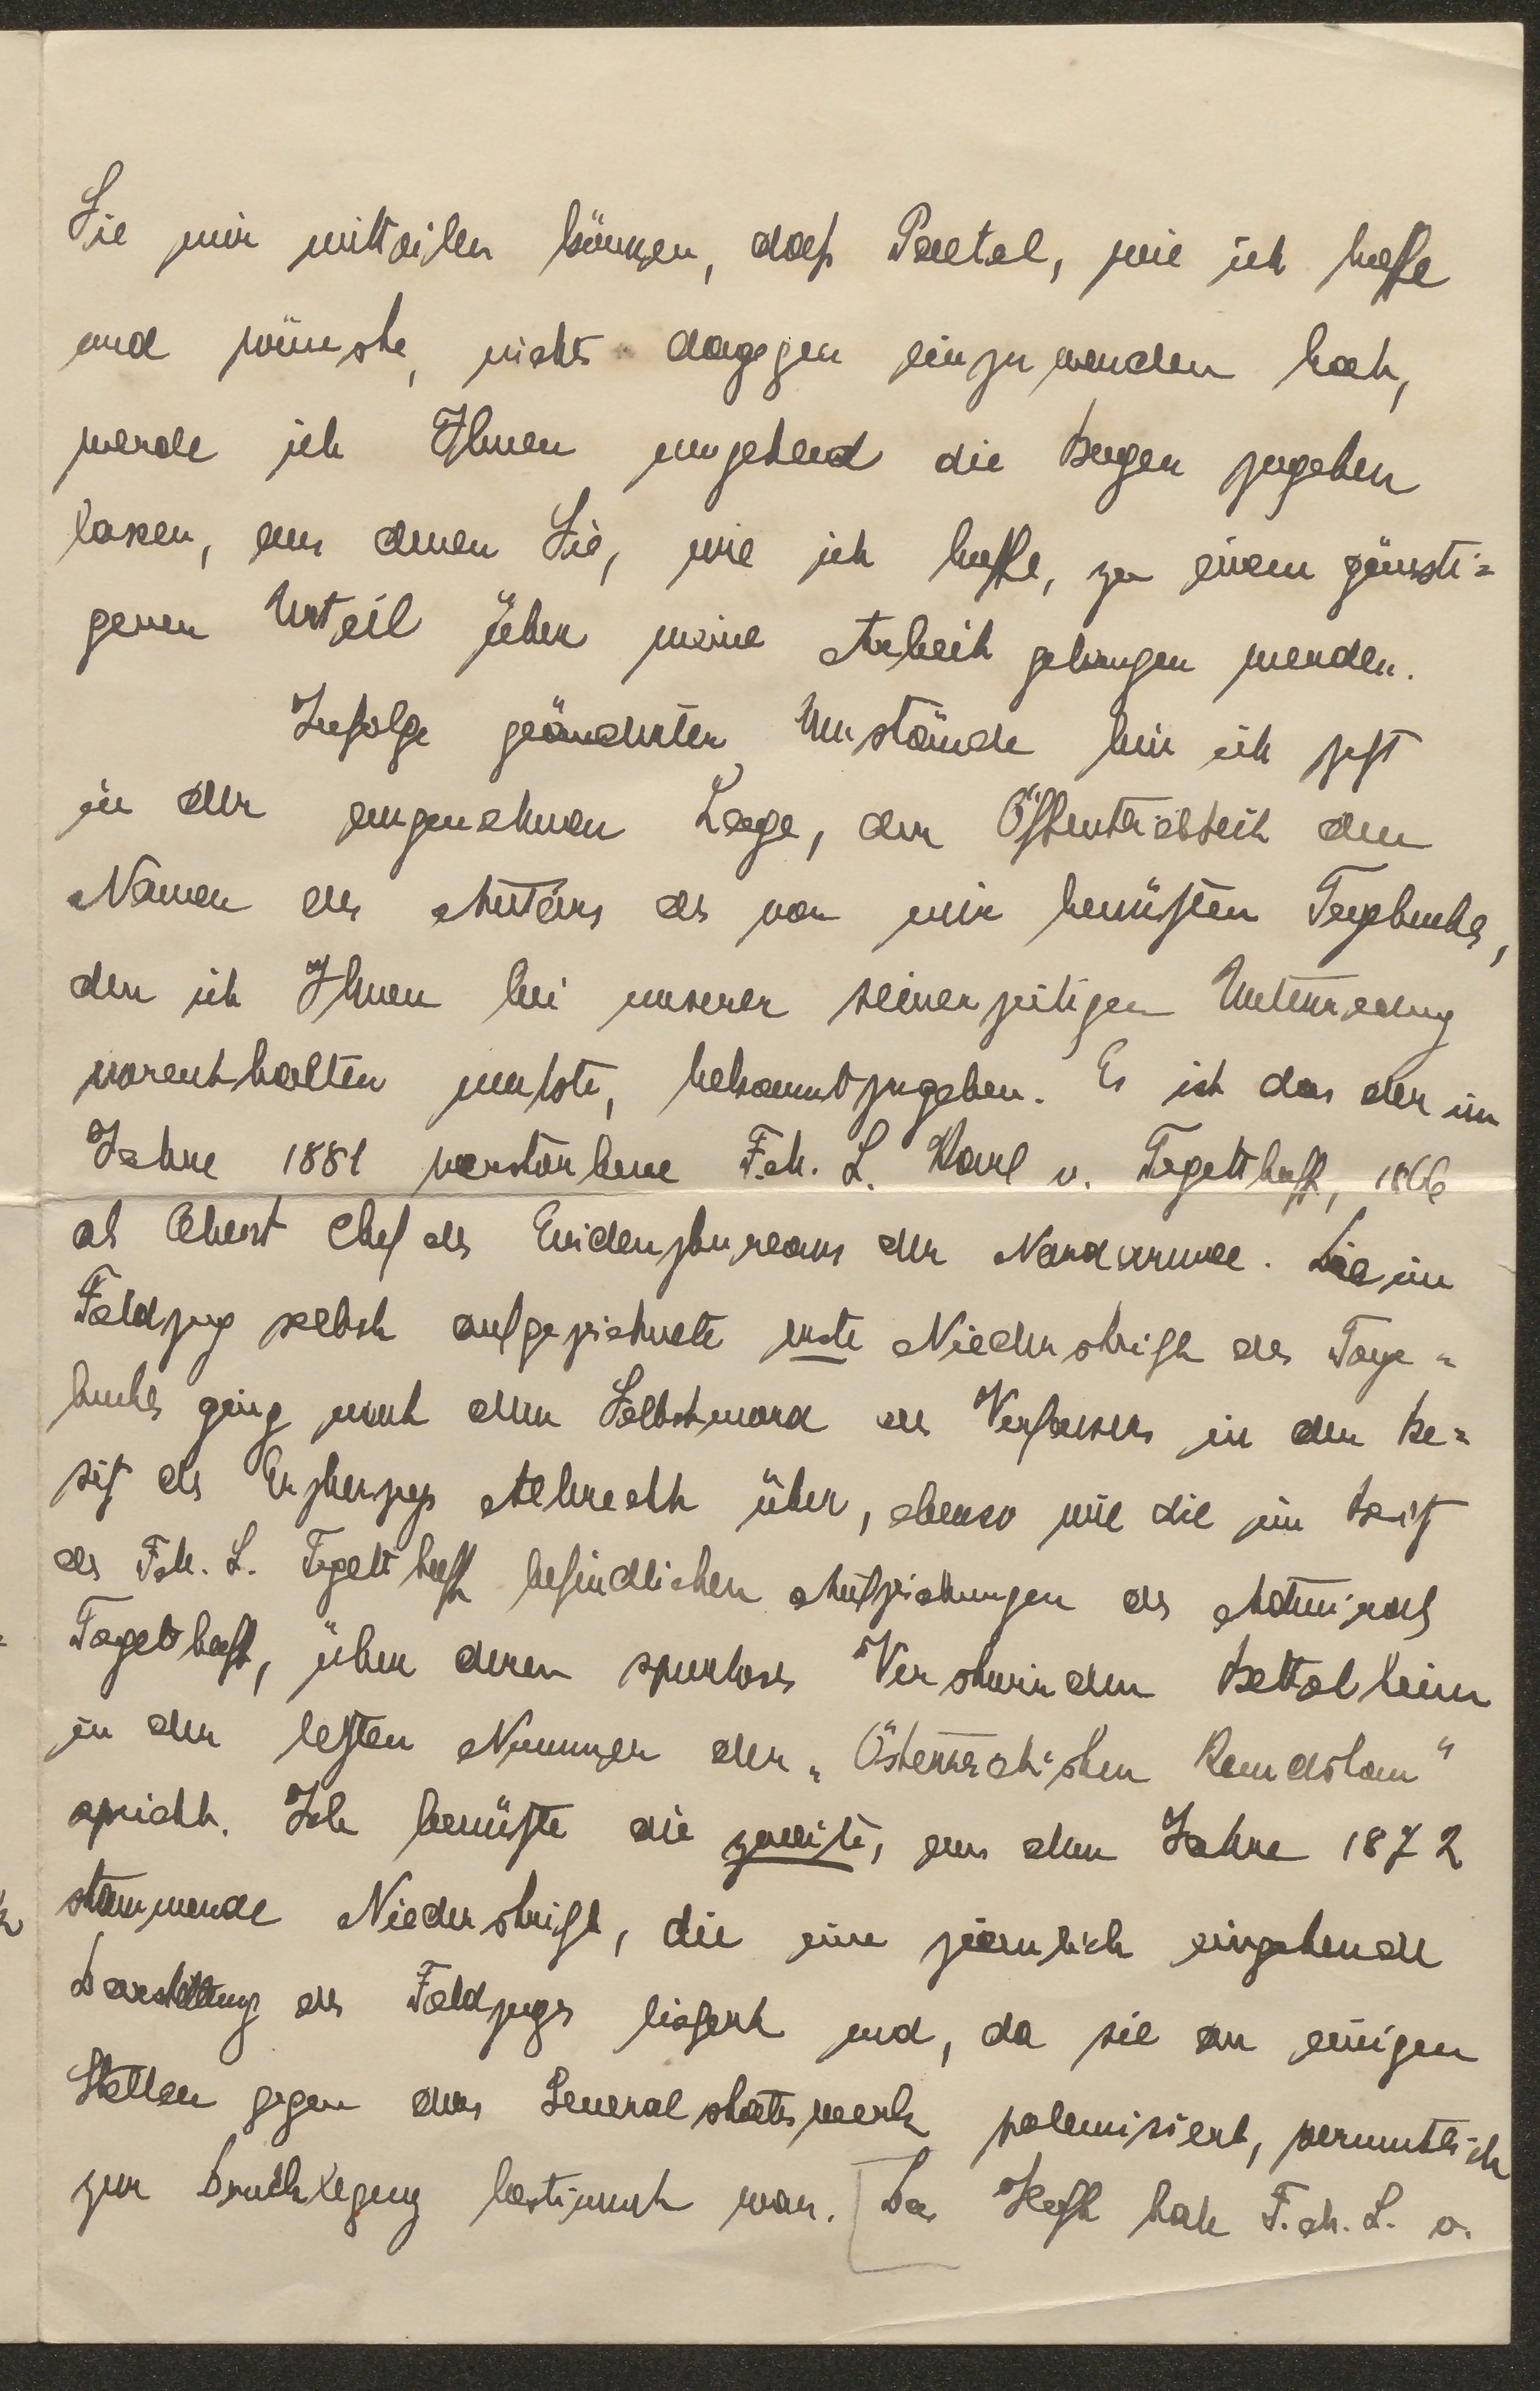 Sie mir mitteilen können, daß Paetel, wie ich hoffe
und wünsche, nichts dagegen einzuwenden hat,
werde ich Ihnen umgehend die Bogen zugehen
lassen, aus denen Sie, wie ich hoffe, zu einem günsti=
geren Urteil über meine Arbeit gelangen werden.
Infolge geänderter Umstände bin ich jetzt
in der angenehmen Lage, der Öffentlichkeit den
Namen des Autors des von mir benützten Tagebuchs,
den ich Ihnen bei unserer seinerzeitigen Unterredung
vorenthalten mußte, bekanntzugeben. Es ist das der im
Jahre 1881 verstorbene F.M.L. Karl v. Tegetthoff, 1866
als Oberst Chef des Evidenzbureaus der Nordarmee. Die im
Feldzug selbst aufgezeichnete erste Niederschrift des Tage=
buchs ging nach dem Selbstmord des Verfassers in den Be=
sitz des Erzherzogs Albrecht über, ebenso wie die im Besitz
des F.M.L. Tegetthoff befindlichen Aufzeichnungen des Admirals
Tegetthoff, über deren spurloses Verschwinden Bettelheim
in der letzten Nummer der „Österreichischen Rundschau"
spricht. Ich benützte die zweite, aus dem Jahre 1872
stammende Niederschrift, die eine ziemlich eingehende
Darstellung des Feldzuges liefert und, da sie an einigen
Stellen gegen das Generalstabswerk polemisiert, vermutlich
zur Drucklegung bestimmt war. [Das Heft hat F.M.L. v.